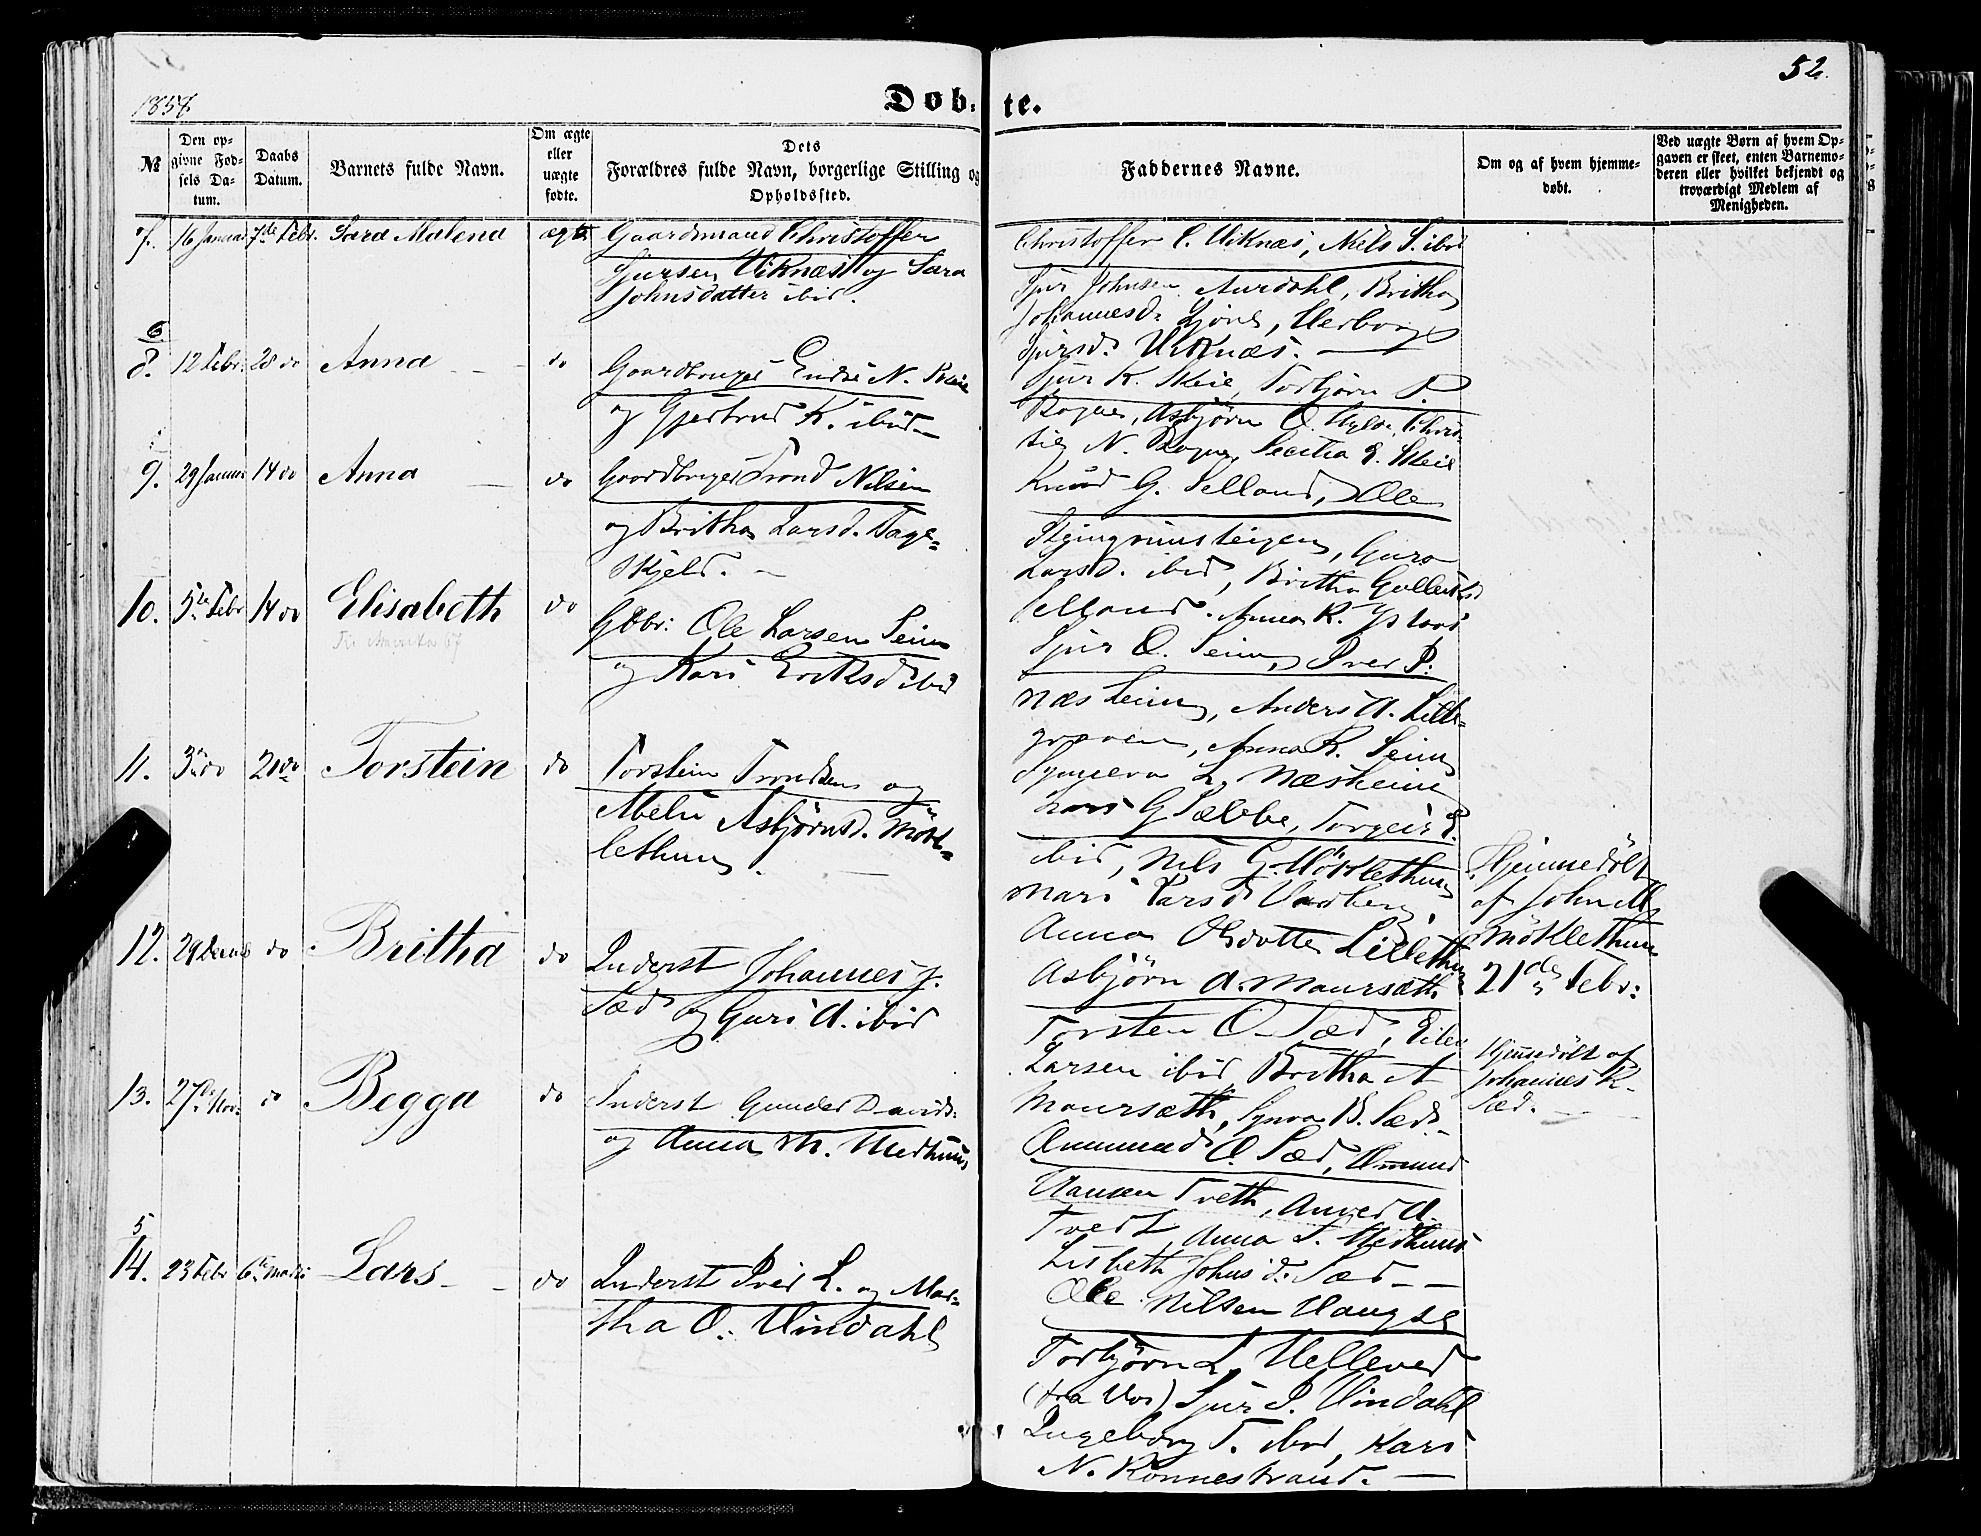 52.
1857.
Døb-te.
№
Den opgivne Fødsels Datum.
Daabs Datum.
Barnets fulde Navn.
Om ægte eller uægte fødte.
Dets Forældres fulde Navn, borgerlige Stilling og Opholdssted.
Faddernes Navne.
Om og af hvem hjemmedøbt.
Ved uægte Børn af hvem Opgaven er skeet, enten Barnemoderen eller hvilket bekjendt og troværdigt Medlem af Menigheden.
7. 16 Januar 7de Febr. Sara Malena ægte Gaardmand Christoffer
Sjursen Viknæs og Sara
Johnsdatter ibid.
Christoffer C. Viknæs, Niels S. ibid
Sjur Johnsen Aurdahl, Britha
Johannesd. Ljone, Herborg
Sjursd. Viknæs.
6
8. 12 Febr. 28 do Anna do Gaardbruger Endre N. Skeie
og Gjertrud K. ibid
Sjur K. Skeie, Torbjørn P.
Rogne, Asbjørn O. Hylde, Chris-
tie N. Rogne, Secilia E. Skeie
9. 29 Januar 14 do Anna do Gaardbruger Trond Nilsen
og Britha Larsd. Tage-
skjeld.
Knud G. Selland, Ole
Steingrimsteigen, Guro
Larsd. ibid, Britha Gulleiksd
Selland. Anna K.
10. 5te Febr 14 do Elisabeth do Gdbr: Ole Larsen Seim
og Kari Eriksd ibid
Til Amerika 67
Sjur O. Seim, Iver P.
Næsheim, Anders A. Lille-
græven, Anna K. Seim
Synneva L. Næsheim
11. 3 do 21 do Torstein do Torstein Trondsen og
Abelu Asbjørnsd. Møkl-
lethun.
Lars G Sæbbe, Torgeir E.
ibid, Nils G. Møkklethun
Mari Larsd
Anna Olsdatter Lillethun
Hjemmedøbt
af John M.
Møkklethun
21de Febr:
12. 29 Decemb do Britha do Inderst Johannes J.
Sæd og Guri A. ibid
Asbjørn A. Maursæth
Torsten O. Sæd, Eilev
Larsen ibid Britha A
Maursæth, Synva B. Sæd
Hjemmedøbt af
Johannes K.
Sæd.
13. 27de Nov: do Begga do Inderst Gunder Davids:
og Anna M. Medhuus
Ammund O. Sæd, Ammund
Hansen Tveth, Anved A.
Tveit Anna S. Medhuus
Lisbeth Johnsd: Sæd
5
14. 23 Febr 6te Marts Lars do Inderst Iver L. og Mar-
tha O. Vindahl
Ole Nilsen Haugse
Torbjørn L Helleved
(fra Vos) Sjur S. Vindahl
Ingeborg T. ibid, Kari
N. Rønnestrand.